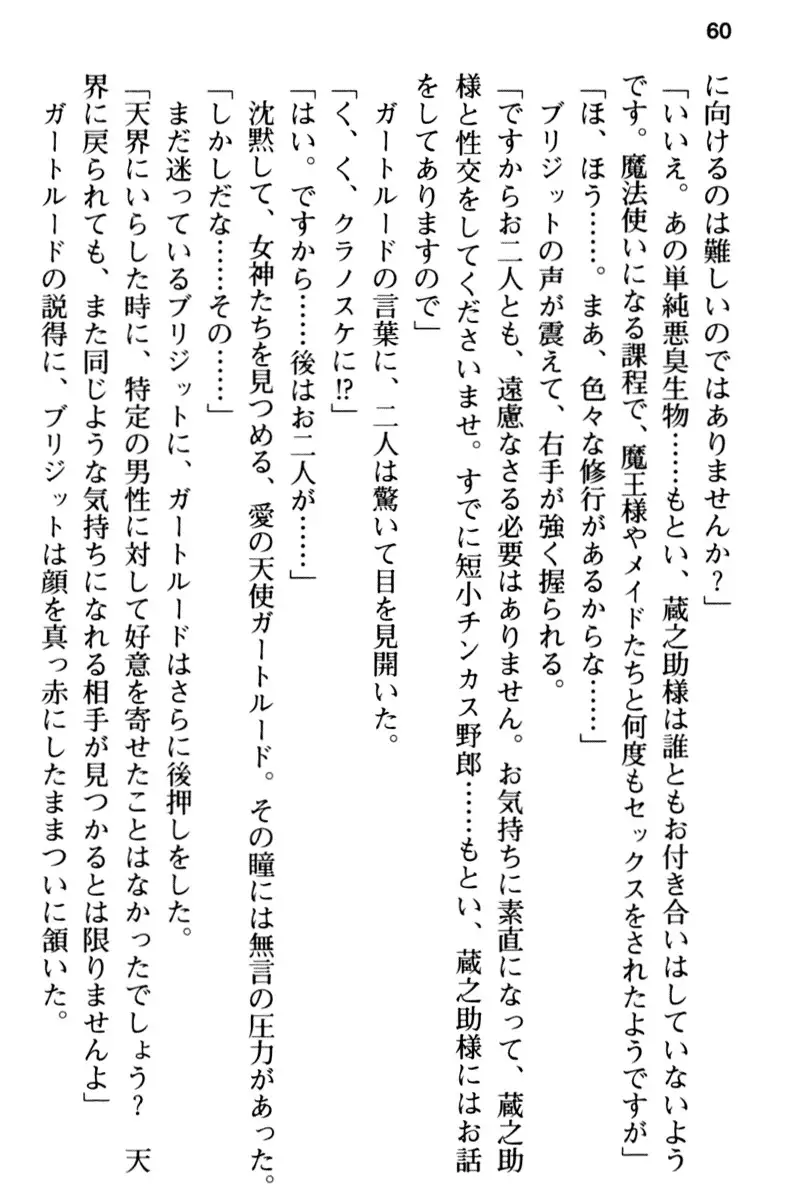 60
に向けるのは難しいのではありませんか？」
「いいえ。あの単純悪臭生物……もとい、蔵之助様は誰ともお付き合いはしていないよう
です。魔法使いになる課程で、魔王様やメイドたちと何度もセックスをされたようですが」
「ほ、ほう……。まあ、色々な修行があるからな……」
ブリジットの声が震えて、右手が強く握られる。
「ですからお二人とも、遠慮なさる必要はありません。お気持ちに素直になって、蔵之助
様と性交をしてくださいませ。すでに短小チンカス野郎……もとい、蔵之助様にはお話
をしてありますので」
ガートルードの言葉に、二人は驚いて目を見開いた。
「く、く、クラノスケに!?」
「はい。ですから……後はお二人が……」
沈黙して、女神たちを見つめる、愛の天使ガートルード。その瞳には無言の圧力があった。
「しかしだな……その……」
まだ迷っているブリジットに、ガートルードはさらに後押しをした。
「天界にいらした時に、特定の男性に対して好意を寄せたことはなかったでしょう？　天
界に戻られても、また同じような気持ちになれる相手が見つかるとは限りませんよ」
ガートルードの説得に、ブリジットは顔を真っ赤にしたままついに頷いた。